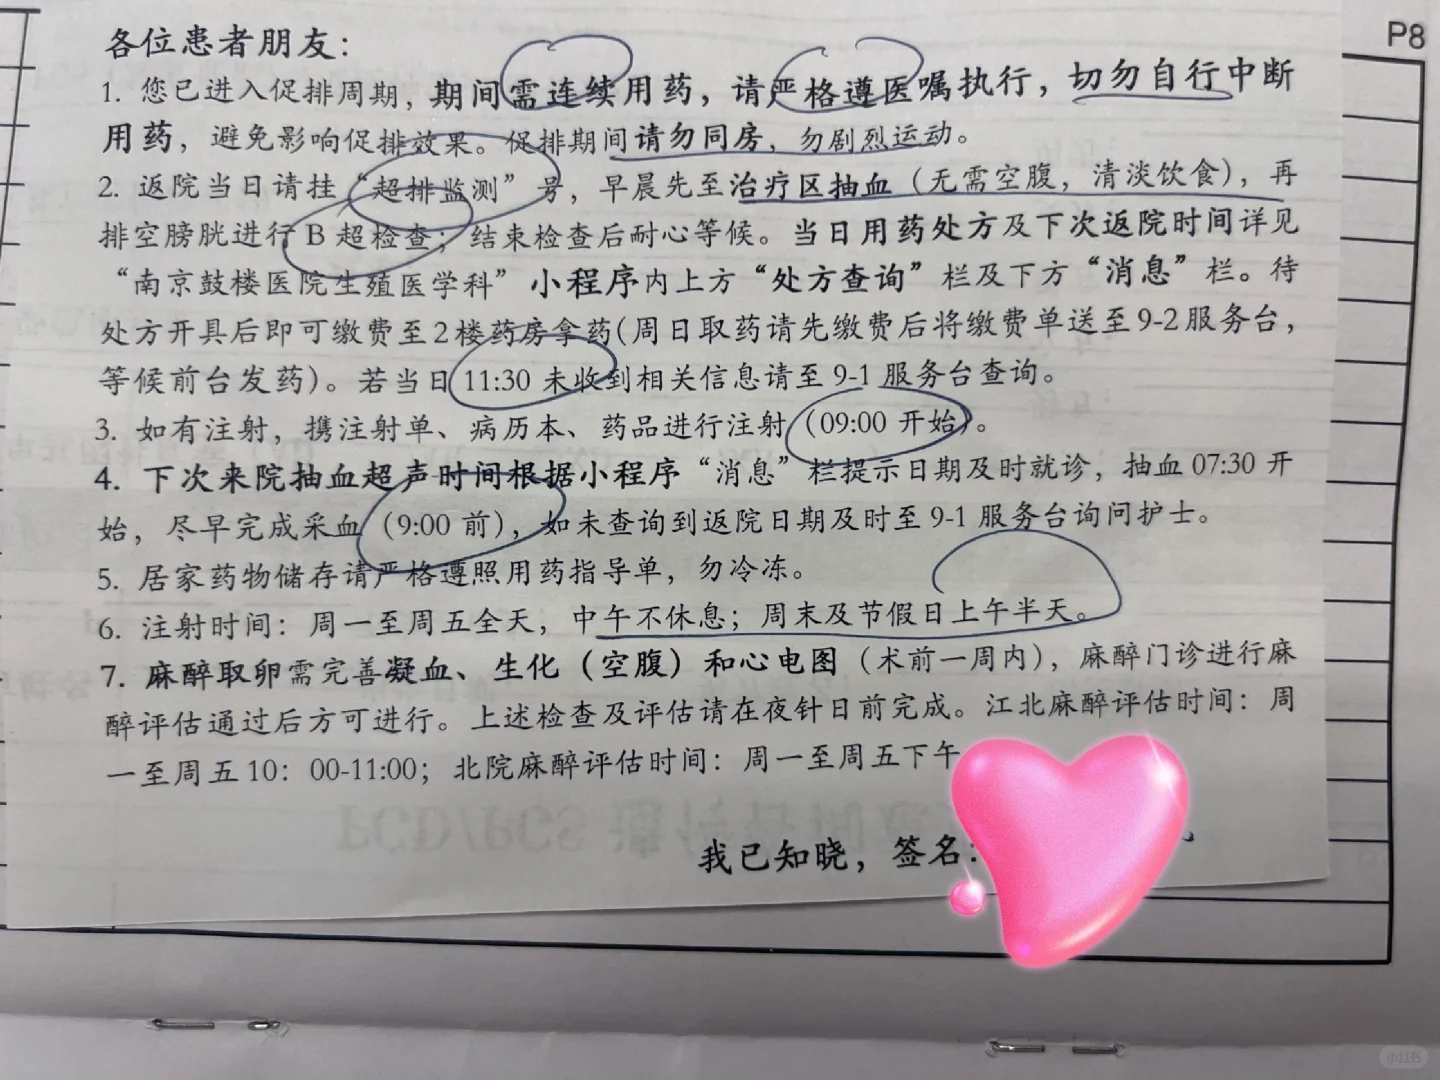 P8
各位患者朋友：
1. 您已进入促排周期，期间需连续用药，请严格遵医嘱执行，切勿自行中断
用药，避免影响促排效果。促排期间请勿同房，勿剧烈运动。
2. 返院当日请挂“超排监测”号，早晨先至治疗区抽血（无需空腹，清淡饮食），再
排空膀胱进行 B 超检查；结束检查后耐心等候。当日用药处方及下次返院时间详见
“南京鼓楼医院生殖医学科”小程序内上方“处方查询”栏及下方“消息”栏。待
处方开具后即可缴费至2楼药房拿药(周日取药请先缴费后将缴费单送至9-2服务台，
等候前台发药)。若当日 11:30 未收到相关信息请至 9-1 服务台查询。
3. 如有注射，携注射单、病历本、药品进行注射（09:00 开始）。
4. 下次来院抽血超声时间根据小程序“消息”栏提示日期及时就诊，抽血 07:30 开
始，尽早完成采血（9:00 前），如未查询到返院日期及时至 9-1 服务台询问护士。
5. 居家药物储存请严格遵照用药指导单，勿冷冻。
6. 注射时间：周一至周五全天，中午不休息；周末及节假日上午半天。
7. 麻醉取卵需完善凝血、生化（空腹）和心电图（术前一周内），麻醉门诊进行麻
醉评估通过后方可进行。上述检查及评估请在夜针日前完成。江北麻醉评估时间：周
一至周五 10：00-11:00；北院麻醉评估时间：周一至周五下午
我已知晓，签名：
小红书